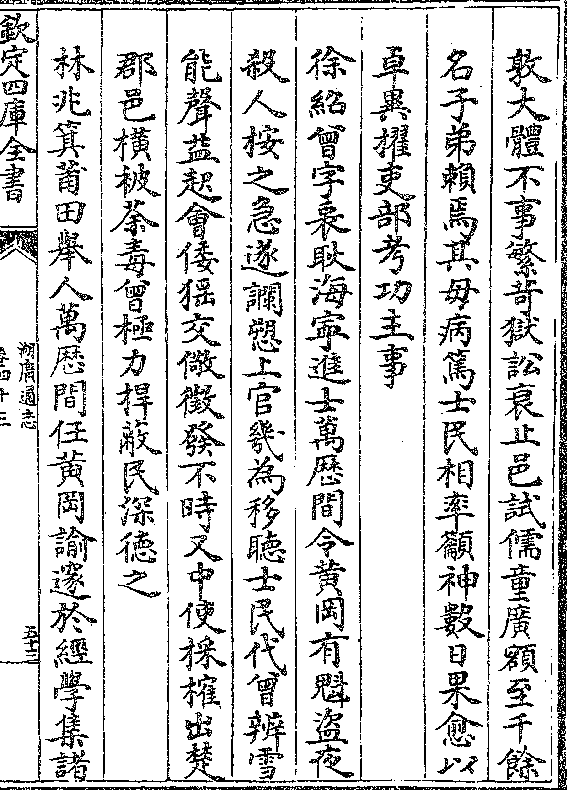 敦大體不事繁苛獄訟衰止邑試儒童廣額至千餘
名子弟賴焉其母病篤士民相率籲神數日果愈以
卓異擢吏部考功主事
徐紹曾字衷耿海寧進士萬歷間令黃岡有魁盜夜
殺人按之急遂讕愬上官幾為移聽士民代曾辨雪
能聲益起會倭猺交儆徵發不時又中使採榷出楚
郡邑橫被荼毒曾極力捍蔽民深徳之
林兆箕莆田舉人萬歷間任黃岡諭邃於經學集諸
欽定四庫全書
湖廣通志
卷四十三
五十三